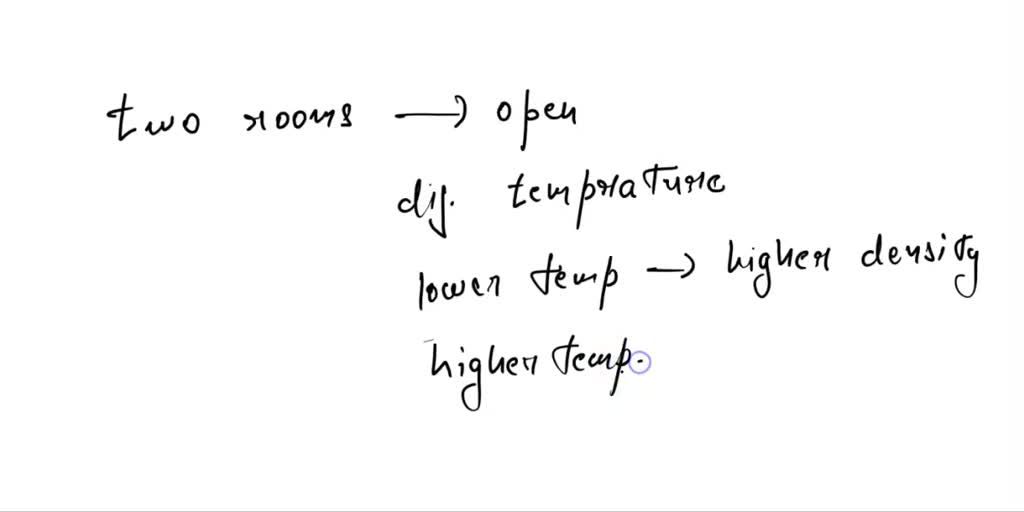 two rooms → open
dif. temprature
lower temp → higher density
higher temp.